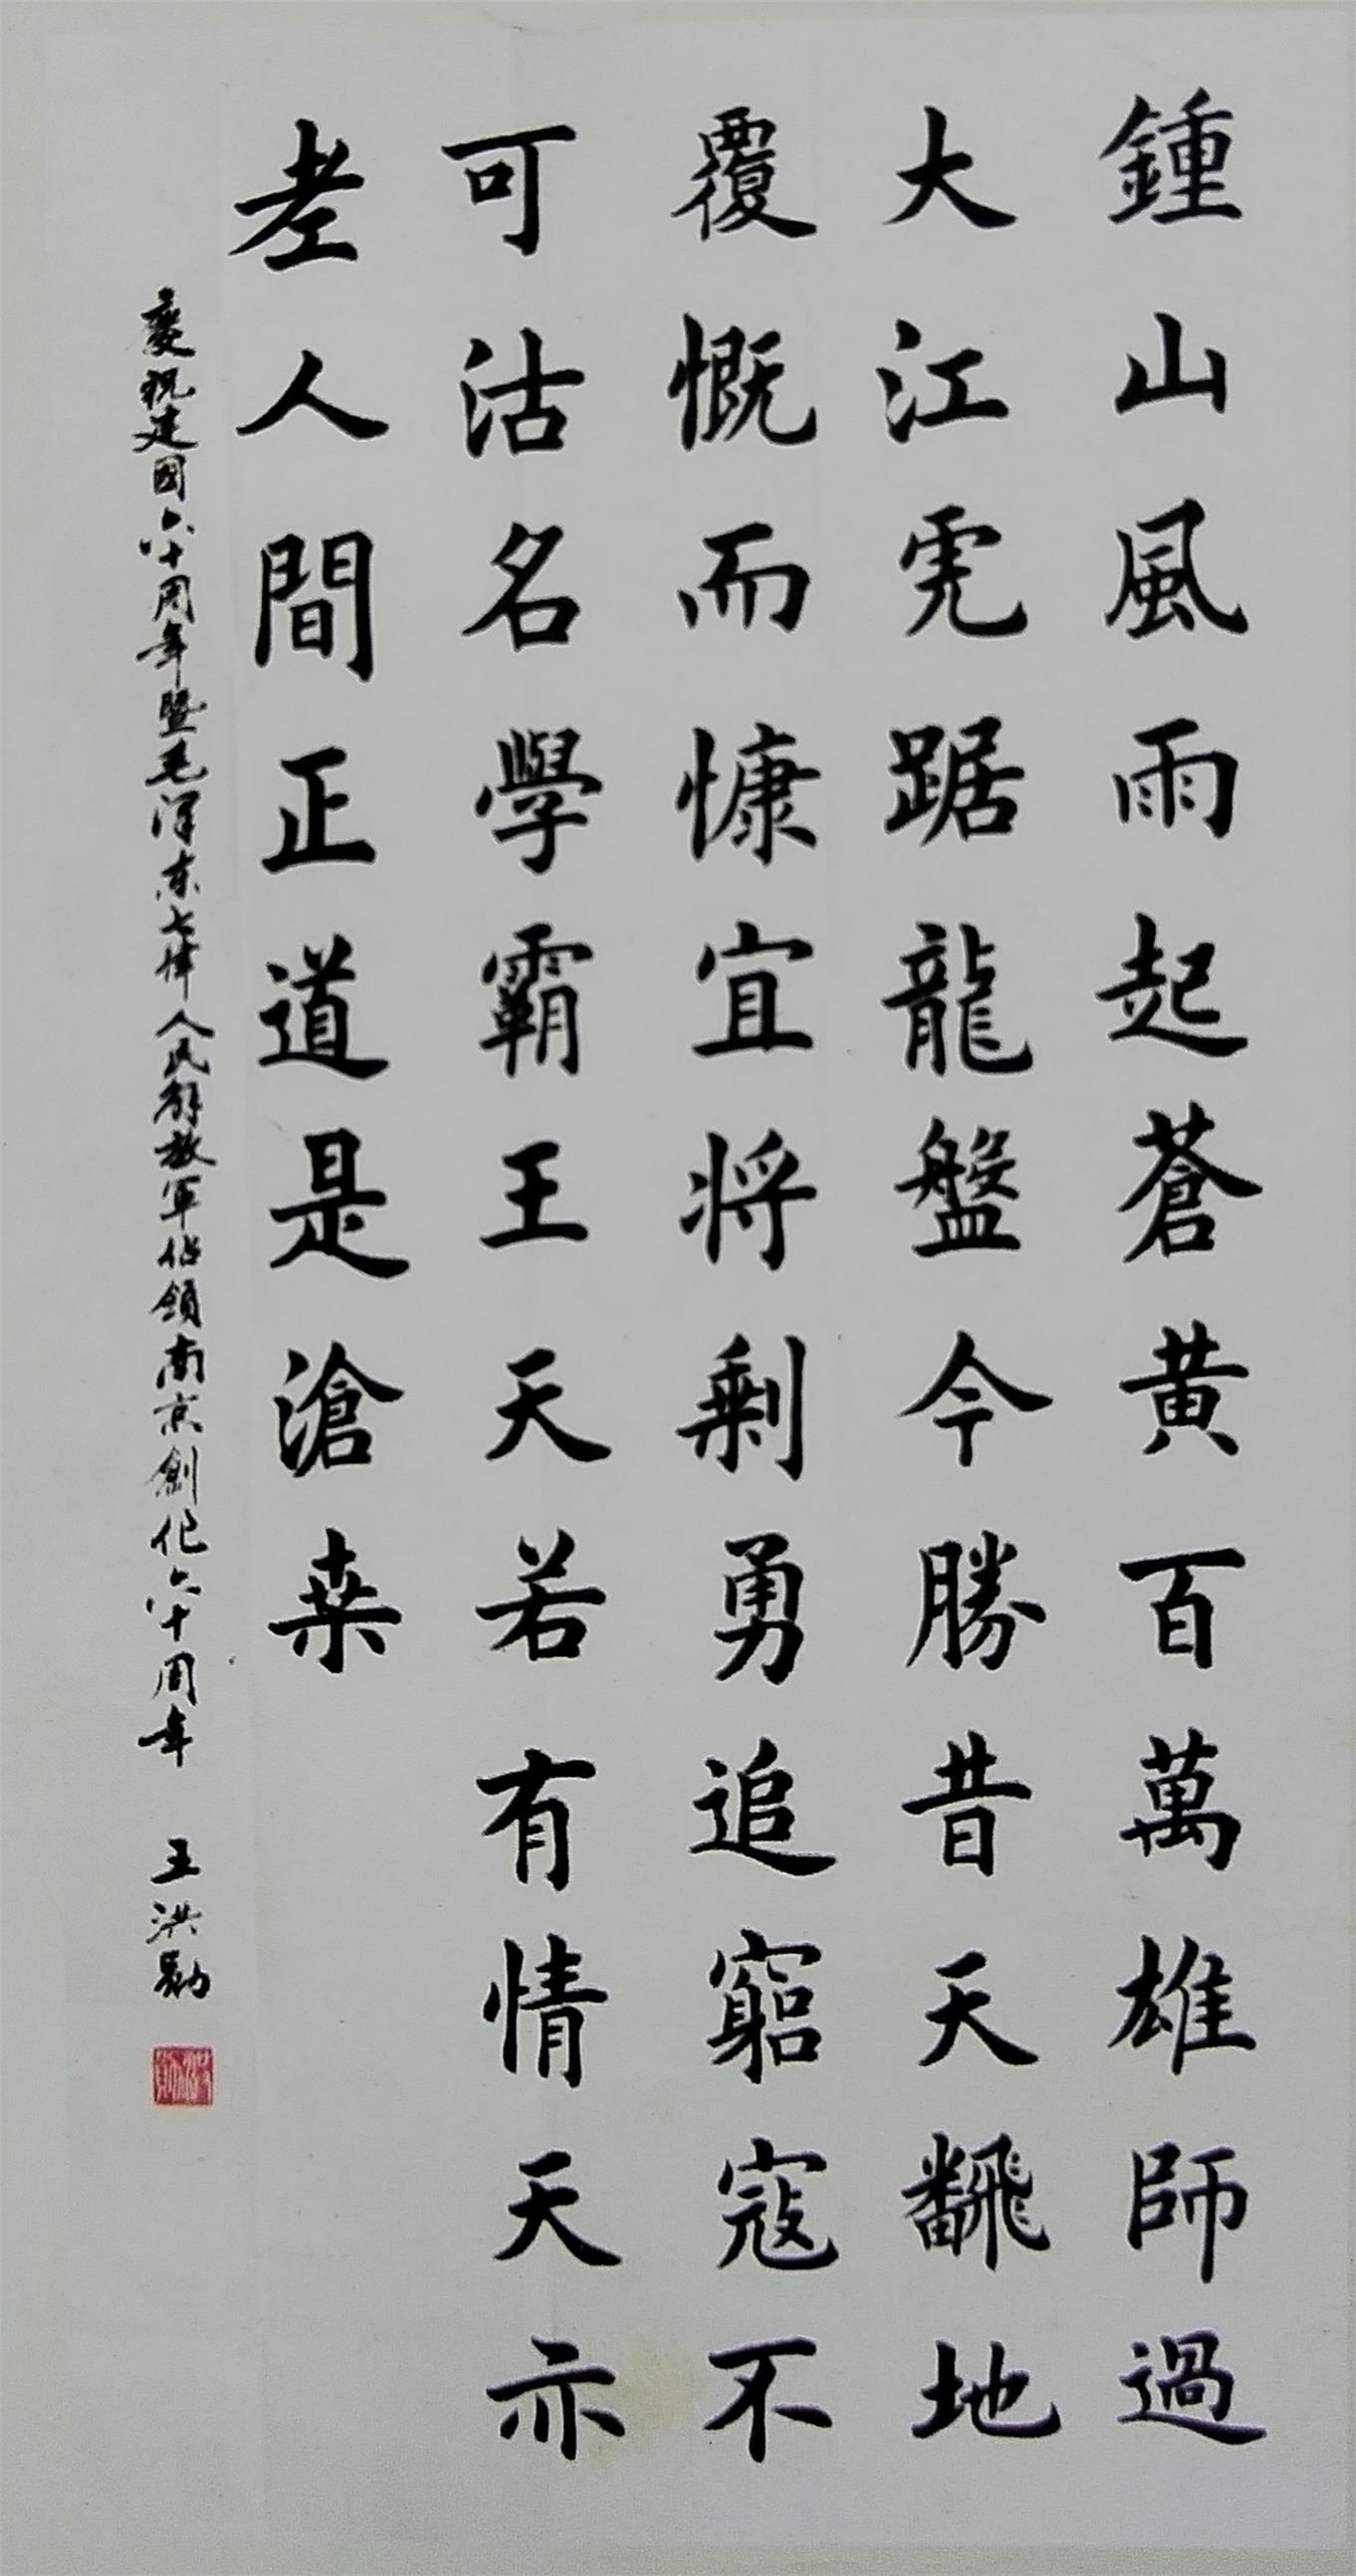 鍾山風雨起蒼黄百萬雄師過
大江虎踞龍盤今勝昔天飜地
覆慨而慷宜将剩勇追窮寇不
可沽名學霸王天若有情天亦
老人間正道是滄桒
慶祝建國六十周年暨毛澤東七律人民解放軍佔領南京創作六十周年 王洪勛